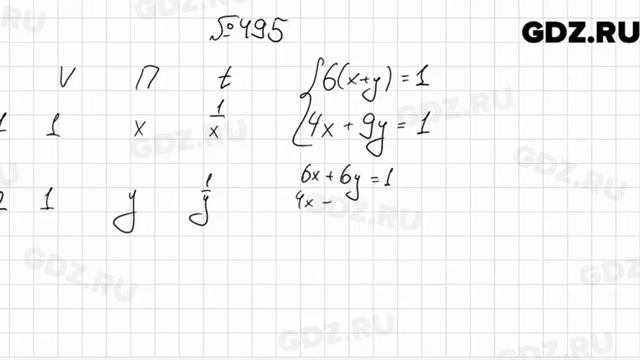 №495
GDZ.RU
V П t
1 1 x 1/x
2 1 y 1/y
{6(x+y)=1
{4x+9y=1
6x+6y=1
4x-
GDZ.RU
GDZ.RU
GDZ.RU
GDZ.RU
GDZ.RU
GDZ.RU
GDZ.RU